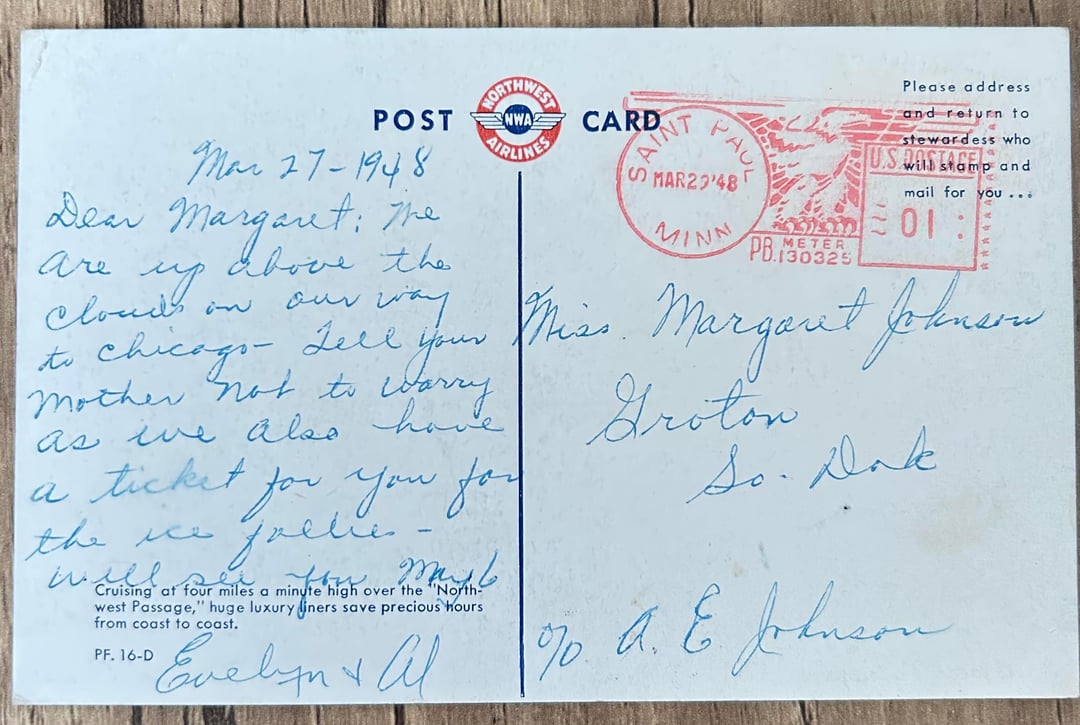 POST CARD
NORTHWEST
NWA
AIRLINES
Please address
and return to
stewardess who
will stamp and
mail for you ...
SAINT PAUL
MAR 29 '48
MINN
U.S. POSTAGE
01
PB. METER
130325
Mar 27-1948
Dear Margaret: We
are up above the
clouds on our way
to Chicago- Tell your
Mother not to worry
as we also have
a ticket for you for
the ice follies -
Will see you May 6
Cruising at four miles a minute high over the "North-
west Passage," huge luxury liners save precious hours
from coast to coast.
PF. 16-D
Evelyn + Al
Miss. Margaret Johnson
Groton
So. Dak
c/o A. E Johnson